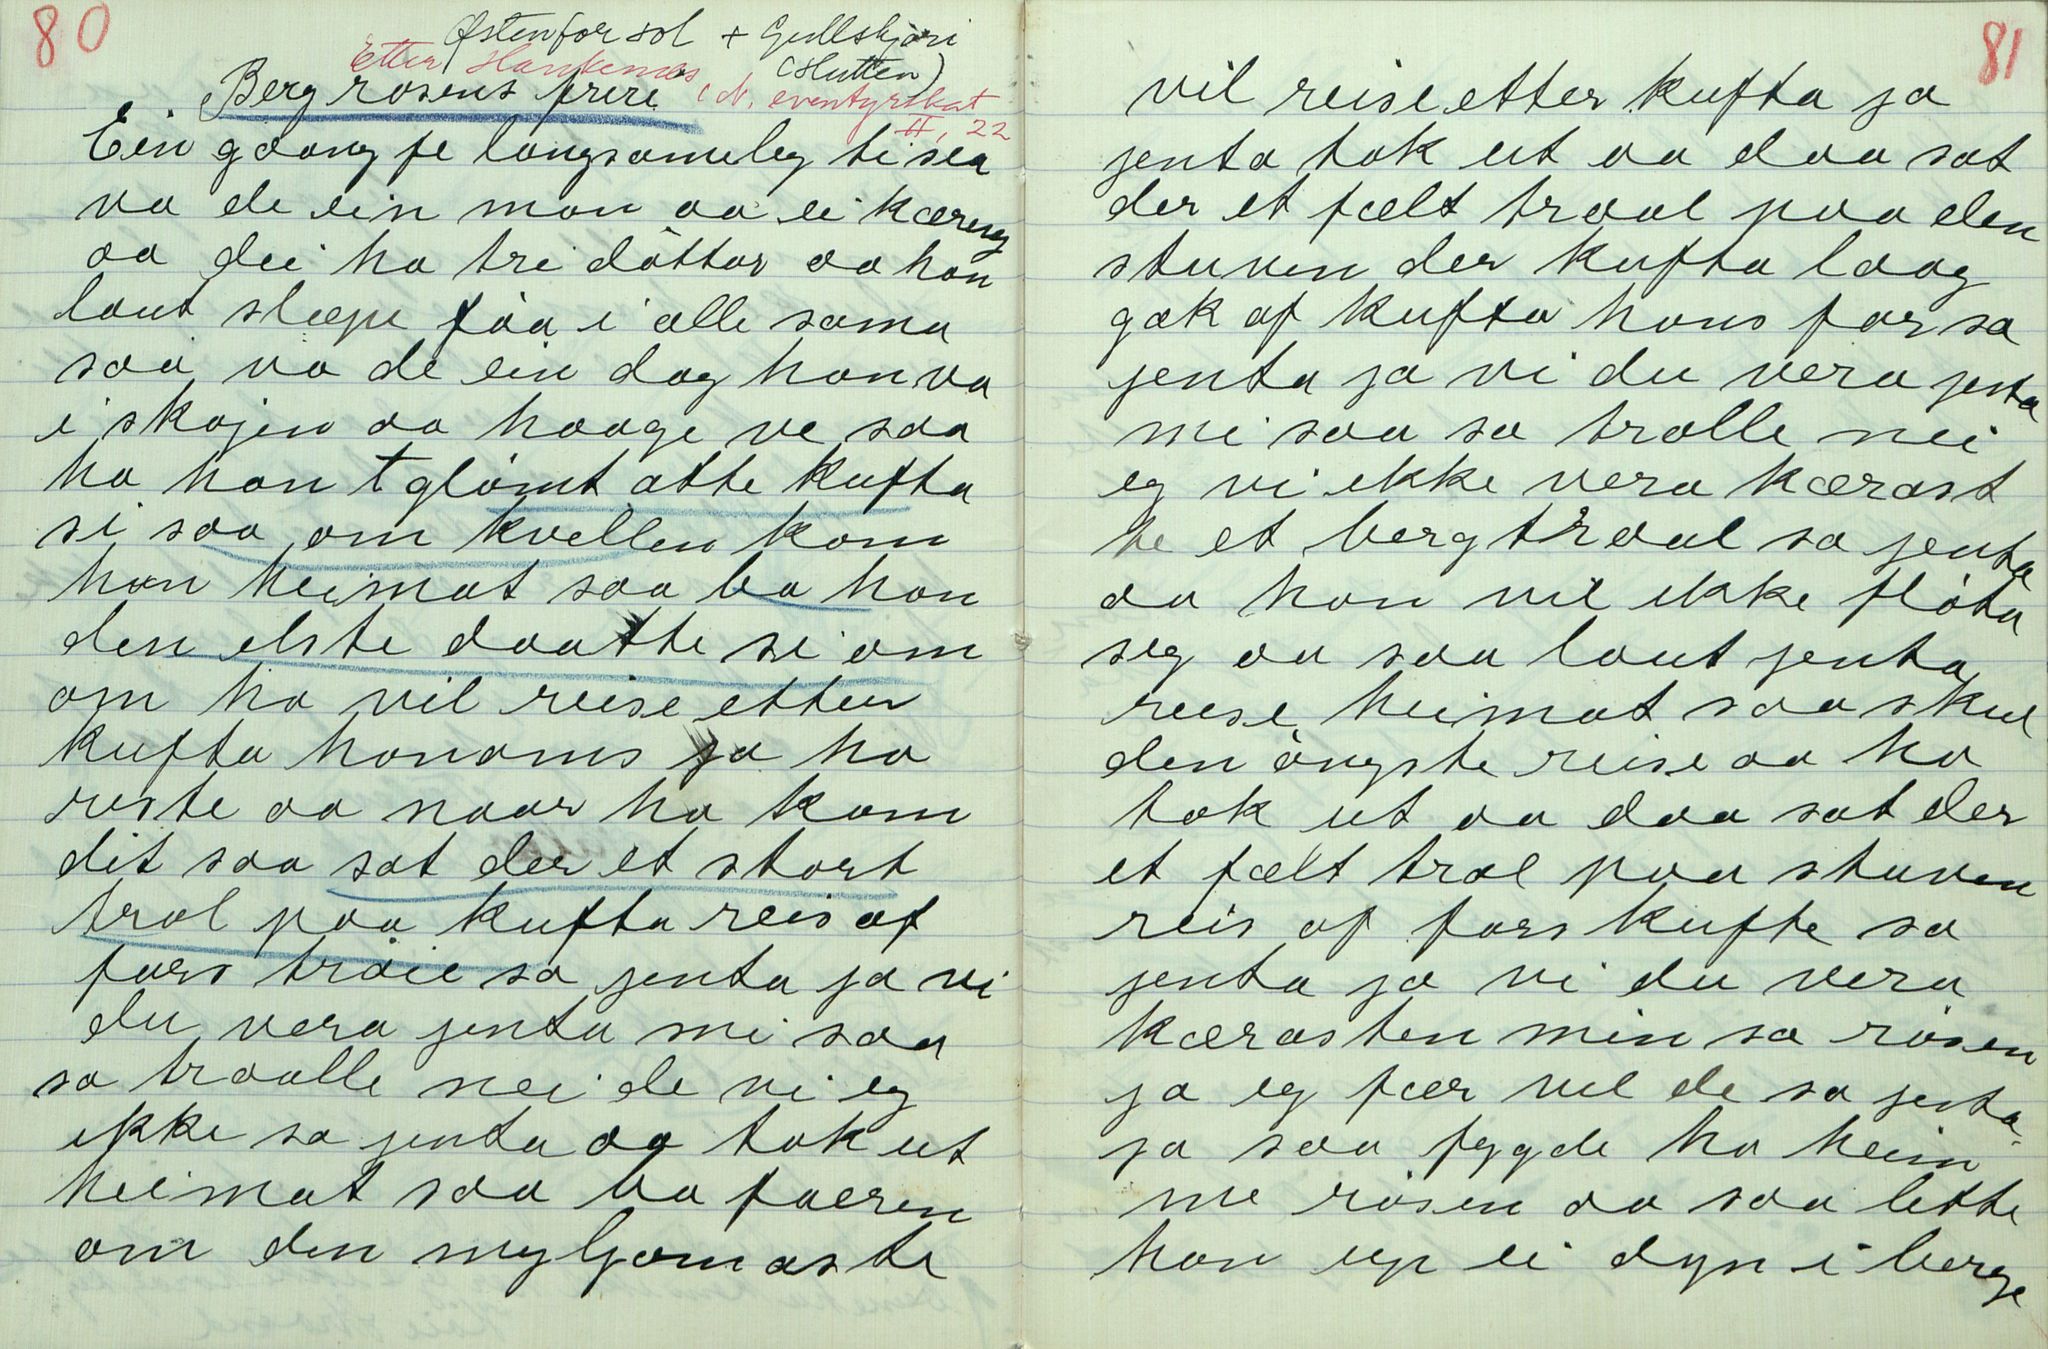 80
Østenforsol + Gullskjøri
(Hutten)
Etter Haukenæs (N. eventyrskat
II, 22
Bergrosens frieri
Ein gaang fe langsameleg ti sea
va de ein man aa ei kæreng
aa dei ha tri döttar aa han
laut slæpe föa i alle sama
saa va de ein dag han va
i skojen aa hogge ve saa
ha han glömt atte kufta
si saa om kvellen kom
han heimat saa ba han
den elste daatte si om
om ho vil reise etter
kufta honoms ja ho
reiste aa naar ho kom
dit saa sat der et stort
trol paa kufta reis af
fars tröie sa jenta ja vi
du vera jenta mi saa
sa traalle nei de vi eg
ikke sa jenta aa tok ut
heimat saa ba faeren
om den myljomaste
81
vil reise etter kufta ja
jenta tok ut aa daa sat
der et fælt traal paa den
stuven der kufta laag
gak af kufta hans far sa
jenta ja vi du vera jenta
mi saa sa tralle nei
eg vi ikke vera kærast
te et bergtraal sa jenta
aa han vil ikke flöta
seg aa saa laut jenta
reise heimat saa skul
den öngste reise aa ho
tok ut aa daa sat der
et fælt tral paa stuven
reis af fars kufte sa
jenta ja vi du vera
kærasten min sa risen
ja eg fær vel de sa jenta
ja saa fygde ho heim
me risen aa saa lette
han up ei dyn i berge